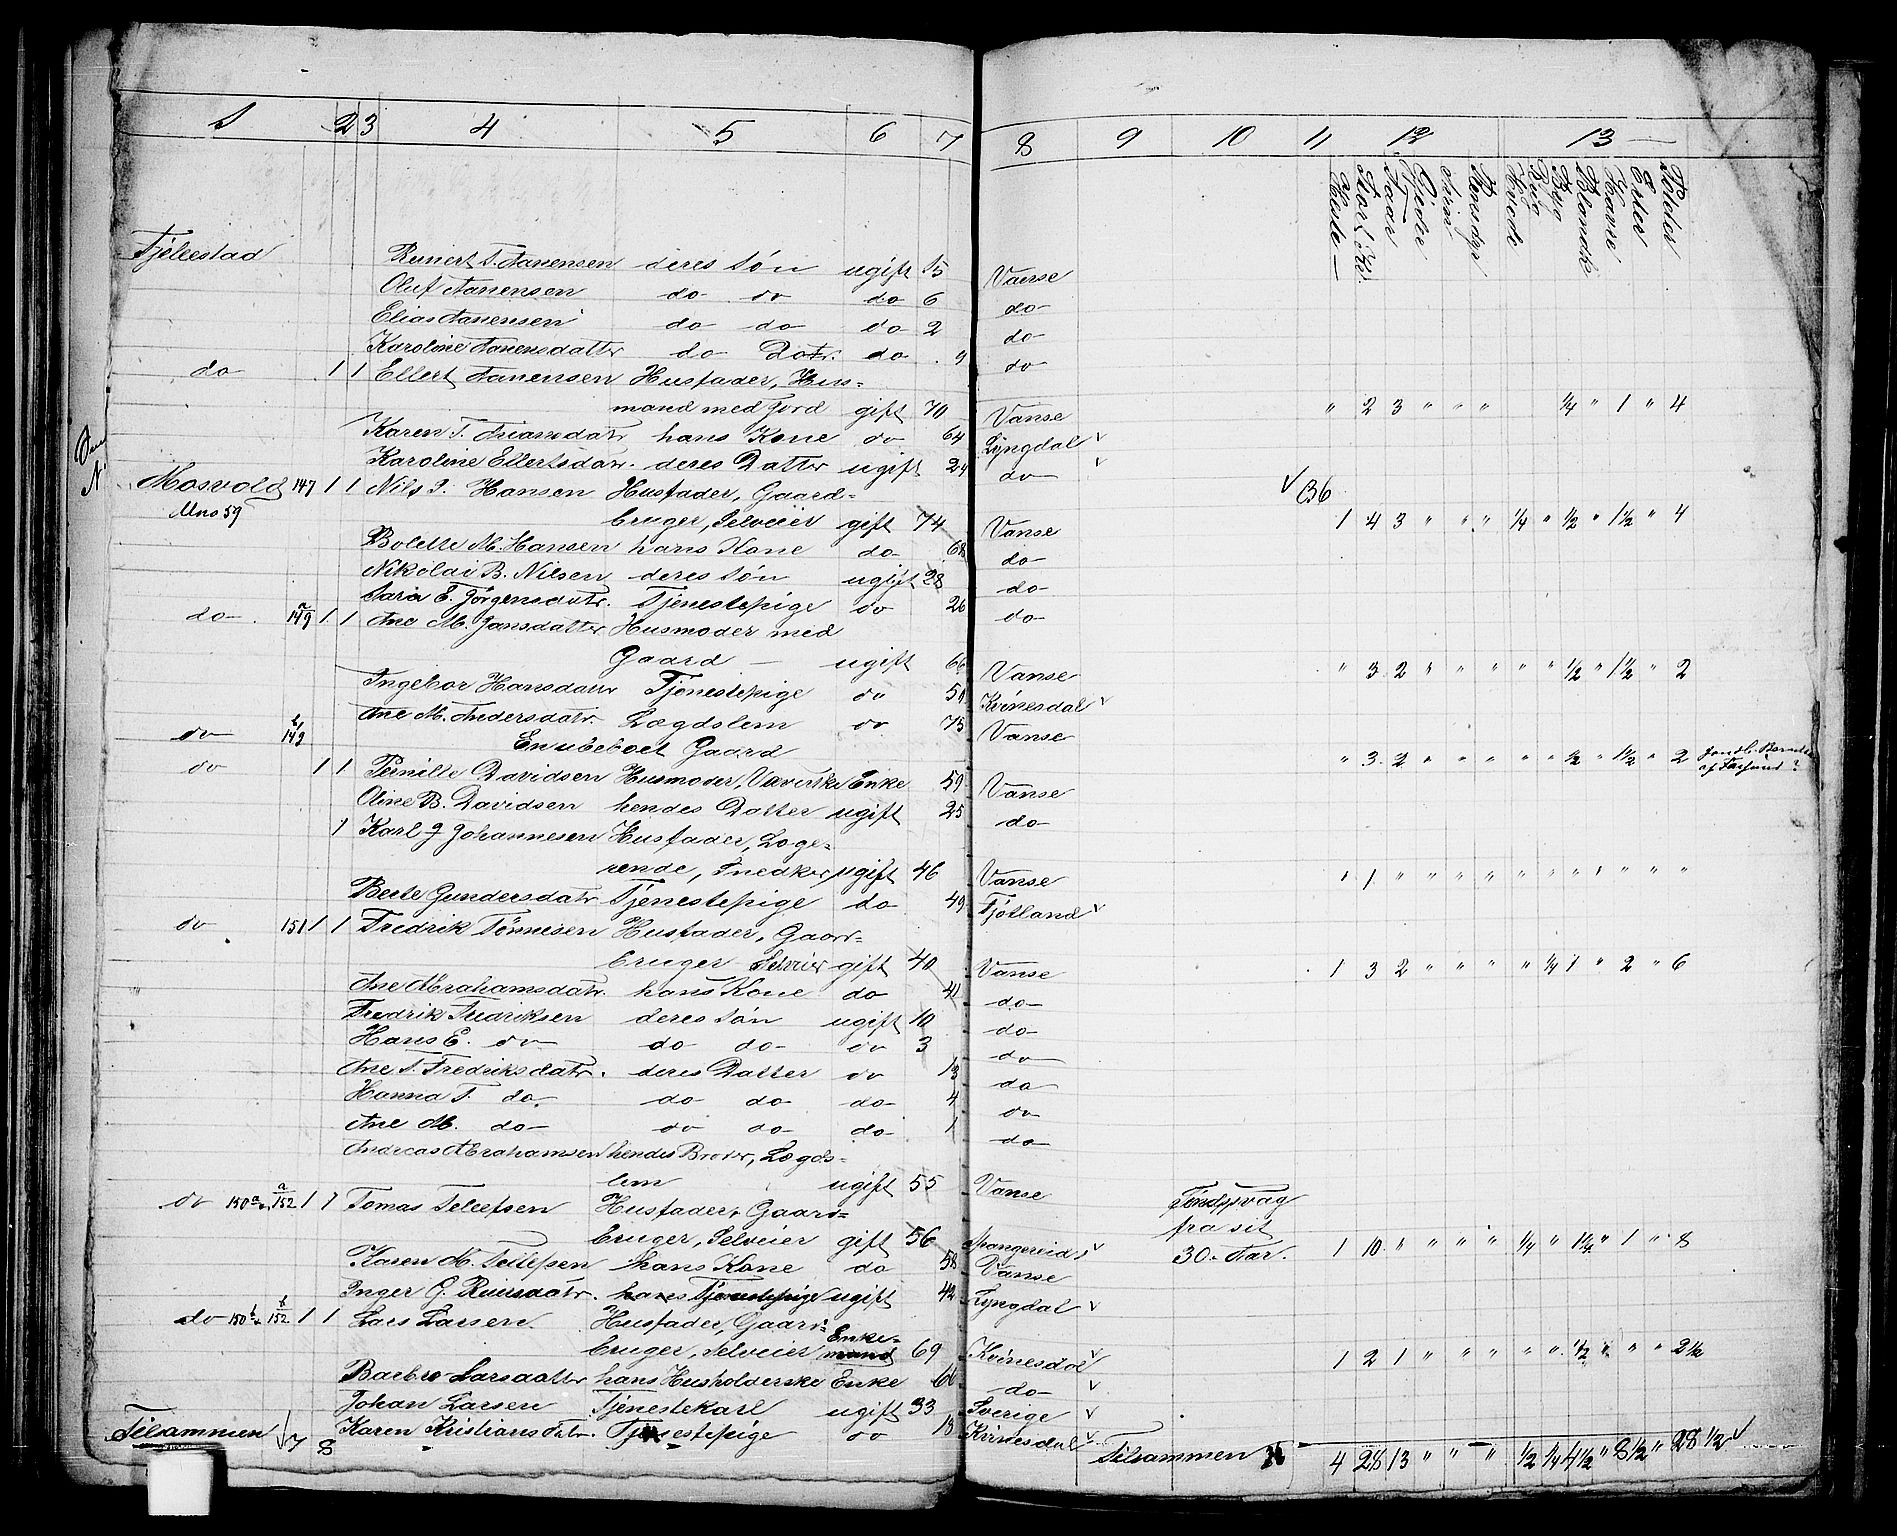 1 2 3 4 5 6 7 8 9 10 11 12 13
Heste Faar Gjeder Sviin Rensdyr Hvede Rug Byg Blandk Havre Erter Poteter
Reinert T. Aanensen deres Søn ugift 15 Vanse
Oluf Aanensen do do do 6 do
Elias Aanensen do do do 2 do
Karoline Aanensdatter do Datr. do 9 do
do 1 1 Ellert Aanensen Husfader, Hus-
mand med Jord gift 70 Vanse " 2 3 " " " ¼ " 1 " 4
Karen T. hans Kone do 64 Lyngdal v
Karoline Ellertsdatr. deres Datter ugift 24 do v
Mosvold 147 1 1 Nils J. Hansen Husfader, Gaard- v 136
Mno 59 bruger, Selveier gift 74 Vanse 1 4 3 " " " ¼ " ½ " 1½ " 4
Bolette M. Hansen hans Kone do 68 do
Nikolai B. Nilsen deres Søn ugift 28 do
Sara E. Jørgensdatr. Tjenestepige do 26 do
do 149 a 1 1 Ane M. Jansdatter Husmoder med
Gaard — ugift 66 Vanse " 3 2 " " " " " ½ " 1½ " 2
Ingebor Hansdatr Tjenestepige do 50 Kvinesdal v
Ane M. Andersdatr. Lægdslem do 75 Vanse
do 149 b En ubeboet Gaard " 3 2 " " " " " ½ " 1½ " 2
do 1 1 Pernille Davidsen Husmoder, Væverske Enke 59 Vanse
Oline B. Davidsen hendes Datter ugift 25 do
1 Karl J Johannesen Husfader, Loge-
rende, Snedker ugift 46 Vanse " 1 " " " " " " " " " " "
Berte Gundersdatr Tjenestepige do 49 Fjotland v
do 151 1 1 Fredrik Tønnesen Husfader, Gaard-
bruger Selveier gift 40 Vanse 1 3 2 " " " " ¼ 1 " 2 " 6
Ane Abrahamsdatr. hans Kone do 41 do
Fredrik Fredriksen deres Søn ugift 10 do
Hans E. do do do do 3 do
Ane T. Fredriksdatr. deres Datter do 13 do
Hanna T. do do do do 4 do
Ane M. do do do do 1 do
Andreas Abrahamsen hendes Broder, Lægds-
lem ugift 55 Vanse Tindssvag
do 150 a 152 a 1 1 Tomas Tellefsen Husfader, Gaard- fra sit
bruger, Selveier gift 56 Spangereid v 30. Aar. 1 10 " " " " ¼ " 1¼ " 1 " 8
Karen M. Tellefsen hans Kone do 58 Vanse
Inger G. Reiersdatr. hans Tjenestepige ugift 42 Lyngdal v
do 150 b 152 b 1 1 Lars Larsen Husfader, Gaard-
bruger, Selveier Enke-mand 69 Kvinesdal v 1 2 1 " " " " " ½ " " " 2½
Barbro Larsdatter hans Husholderske Enke 60 do v
Johan Larsen Tjenestekarl ugift 33 Sverige v
Karen Kristiansdatr. Tjenestepige do 18 Kvinesdal v
Tilsammen 7 8 Tilsammen 4 28 13 " " " ½ ¼ 4½ " 8½ " 28½ v